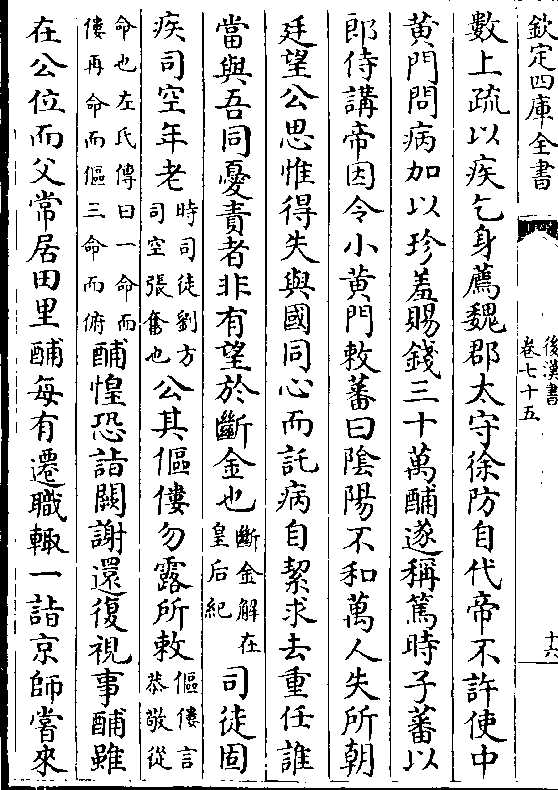 欽定四庫全書
後漢書
卷七十五
十六
數上疏以疾乞身薦魏郡太守徐防自代帝不許使中
黄門問病加以珍羞賜錢三十萬酺遂稱篤時子蕃以
郎侍講帝因令小黄門敕蕃曰陰陽不和萬人失所朝
廷望公思惟得失與國同心而託病自絜求去重任誰
當與吾同憂責者非有望於斷金也
斷金解在
皇后紀
司徒固
疾司空年老
時司徒劉方
司空張奮也
公其傴僂勿露所敕
傴僂言
恭敬從
命也左氏傳曰一命而
僂再命而傴三命而俯
酺惶恐詣闕謝還復視事酺雖
在公位而父常居田里酺每有遷職輒一詣京師嘗來